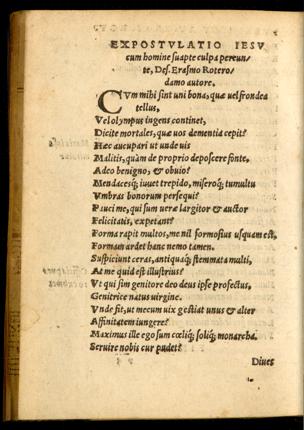 EXPOSTVLATIO IESV
cum homine suapte culpa pereun-
te, Des. Erasmo Rotero/
damo autore.
CVm mihi sint uni bona, quæ uel frondea
tellus,
Vel olympus ingens continet,
Dicite mortales, quæ uos dementia cepit?
Hæc aucupari ut unde uis
Malitis, quàm de proprio deposcere fonte,
Adeo benigno, & obuio?
Mendacesq; iuuet trepido, miseroq; tumultu
Vmbras bonorum persequi?
Pauci me, qui sum ueræ largitor & auctor
Felicitatis, expetant?
Forma rapit multos, me nil formosius usquam est,
Formam ardet hanc nemo tamen.
Suspiciunt ceras, antiquaq; stemmata multi,
At me quid est illustrius?
Vt qui sim genitore deo deus ipse profectus,
Genitrice natus uirgine.
Vnde fit, ut mecum uix gestiat unus & alter
Affinitatem iungere?
Maximus ille ego sum cœliq; soliq; monarcha.
Seruire nobis cur pudet?
Diues